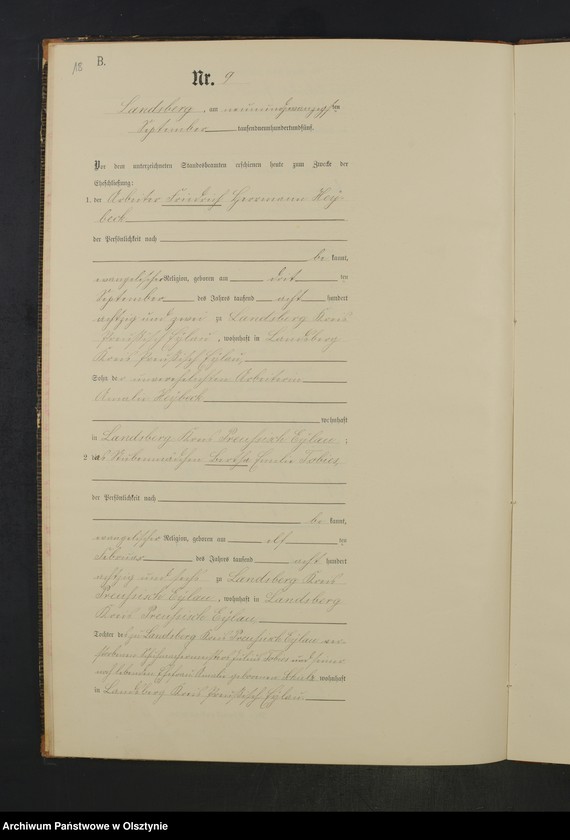 18
B.
Nr. 9
Landsberg, am neunundzwanzigsten
September tausendneunhundertundfünf.
Vor dem unterzeichneten Standesbeamten erschienen heute zum Zwecke der
Eheschließung:
1. der Arbeiter Friedrich Herrmann Hey-
beck
der Persönlichkeit nach
be kannt,
evangelischer Religion, geboren am ten
September des Jahres tausend acht hundert
achtzig und zwei zu Landsberg Kreis
Preußisch Eylau, wohnhaft in Landsberg
Kreis Preußisch Eylau,
Sohn der unverehelichten Arbeiterin
Amalie Heybeck
wohnhaft
in Landsberg Kreis Preußisch Eylau;
2. das Stubenmädchen Bertha Emilie Tobies
der Persönlichkeit nach
be kannt,
evangelischer Religion, geboren am elf ten
Februar des Jahres tausend acht hundert
achtzig und sechs zu Landsberg Kreis
Preußisch Eylau, wohnhaft in Landsberg
Kreis Preußisch Eylau
Tochter des zu Landsberg Kreis Preußisch Eylau ver-
storbenen Schuhmachermeisters Julius Tobies und seiner
noch lebenden Ehefrau Amalie geborenen wohnhaft
in Landsberg Kreis Preußisch Eylau
Archiwum Państwowe w Olsztynie